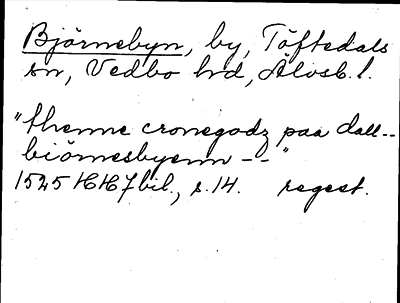 Björnebyn, by, Töftedals
sn, Vedbo hd, Älvsb. l.
"thenne cronegodz paa dall--
biörnesbyenn -- "
1525 HH7 bil., s. 14. regest.